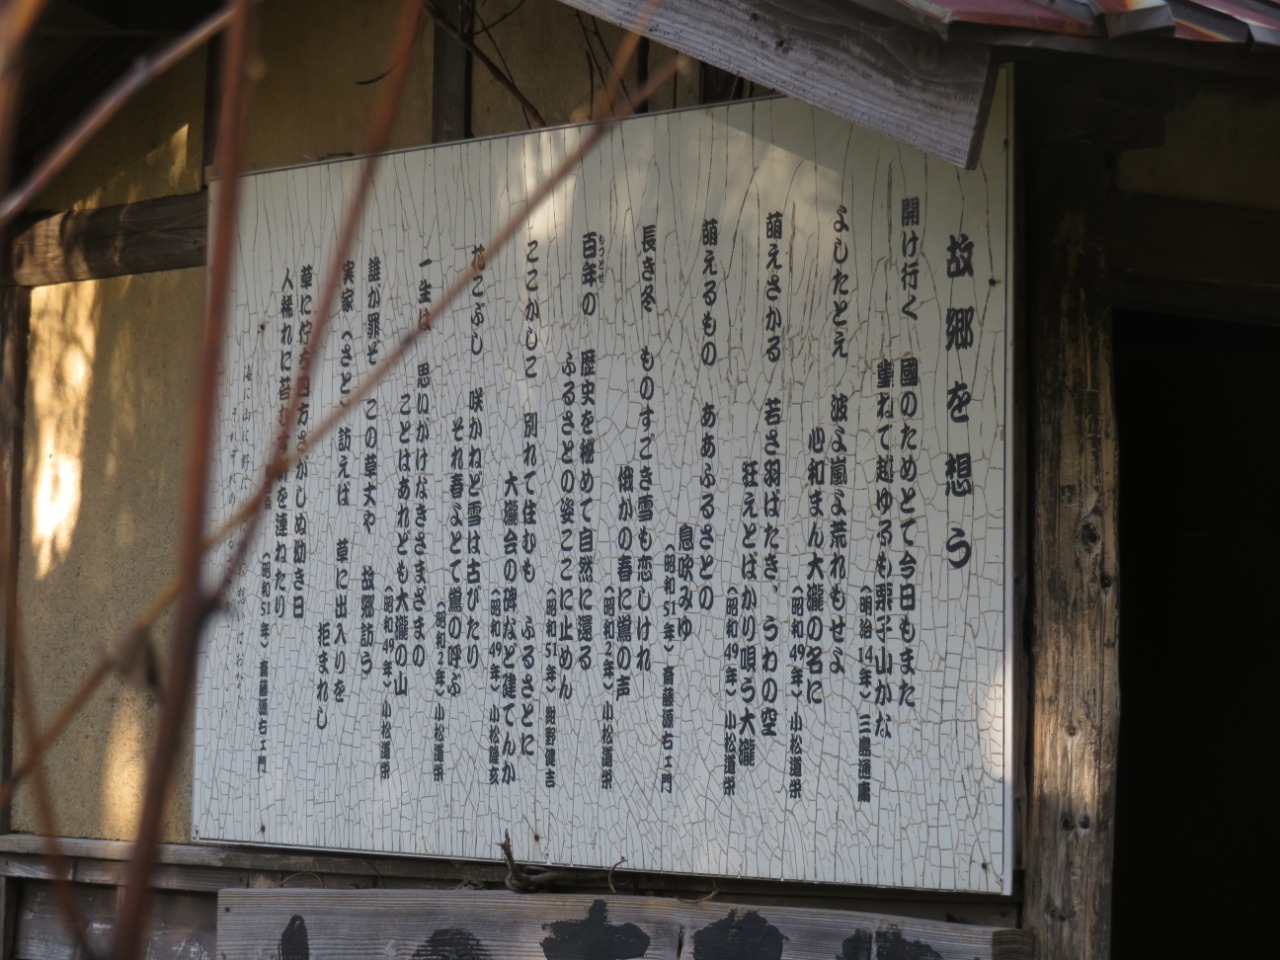 故郷を想う
開け行く 國のためとて今日もまた
重ねて越ゆるも栗子山かな
(明治14年) 三島通庸
よしたとえ 波よ嵐よ荒れもせよ
心和まん大瀧の名に
(昭和49年) 小松道栄
萌えさかる 若さ羽ばたき、うわの空
狂えとばかり唄う大瀧
(昭和49年) 小松道栄
萌えるもの ああふるさとの
息吹みゆ
(昭和51年) 斎藤源右ェ門
長き冬 ものすごき雪も恋しけれ
僅かの春に鶯の声
(昭和2年) 小松道栄
百年の 歴史を秘めて自然に還る
ふるさとの姿ここに止めん
(昭和51年) 紺野健吉
ここかしこ 別れて住むも ふるさとに
大瀧会の碑など建てんか
(昭和49年) 小松健亥
花こぶし 咲かねど雪は古びたり
それ春よとて鶯の呼ぶ
(昭和2年) 小松道栄
一生は 思いがけなきさまざまの
ことはあれども大瀧の山
(昭和49年) 小松道栄
誰が罪ぞ この草丈や 故郷訪う
実家(さと)訪えば 草に出入りを
拒まれし
草に佇ち四方さがしぬ幼き日
人稀れに苔む を連ねたり
(昭和51年) 斎藤源右ェ門
海に山に野に